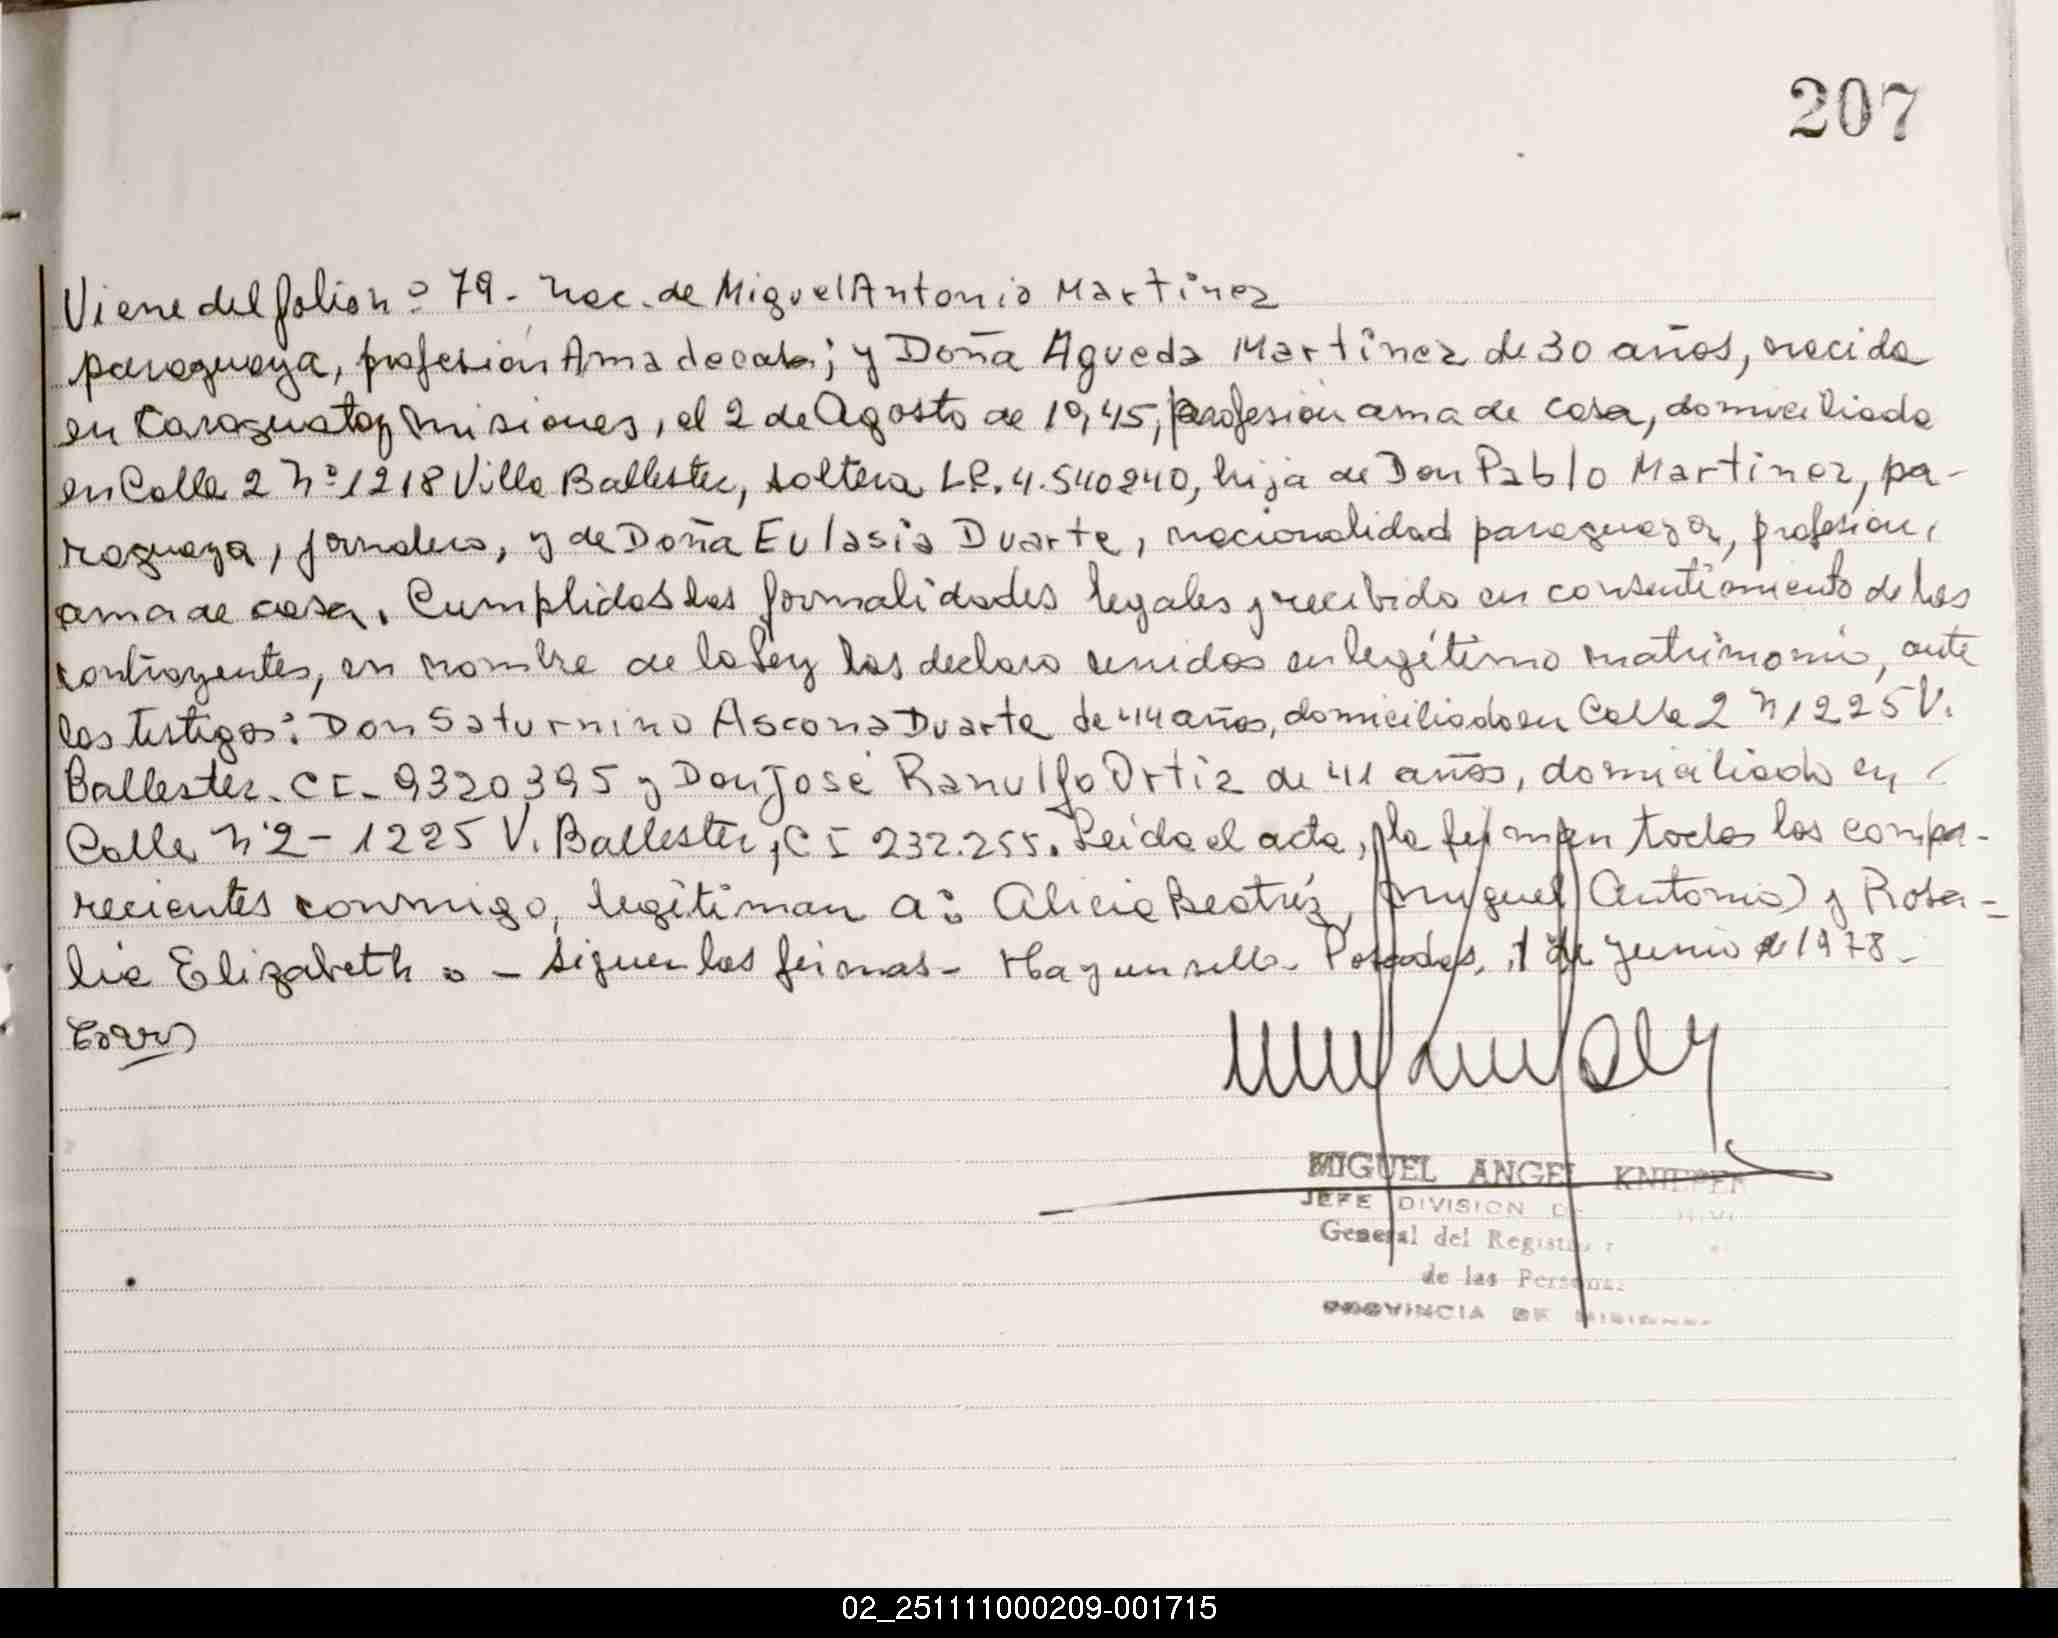 207
Viene del folio nº 79 - Nac. de Miguel Antonio Martinez
paraguaya, profesión Ama de casa; y Doña Agueda Martinez de 30 años, nacida
en Caraguatay Misiones, el 2 de Agosto de 1945, profesión ama de casa, domiciliada
en Calle 2 Nº 1218 Villa Ballester, soltera LC. 4.540240, hija de Don Pablo Martinez, pa-
raguaya, jornalero, y de Doña Eulasia Duarte, nacionalidad paraguaya, profesión,
ama de casa. Cumplidas las formalidades legales y recibido en consentimiento de los
contrayentes, en nombre de la Ley los declaro unidos en legítimo matrimonio, ante
los testigos: Don Saturnino Ascona Duarte de 44 años, domiciliado en Calle 2 N 1225 V.
Ballester. CI- 9320395 y Don José Ranulfo Ortiz de 41 años, domiciliado en
Calle Nº 2 - 1225 V. Ballester, CI 232.255. Leída el acta, la firman todos los compa-
recientes conmigo, legitiman a: Alicia Beatríz, (Miguel Antonio) y Rosa-
lia Elizabeth. - Siguen las firmas - Hay un sello - Posadas, 1 de Junio de 1978 -
MIGUEL ANGEL
JEFE DIVISION
General del Registro
de las Personas
PROVINCIA DE MISIONES
02_251111000209-001715